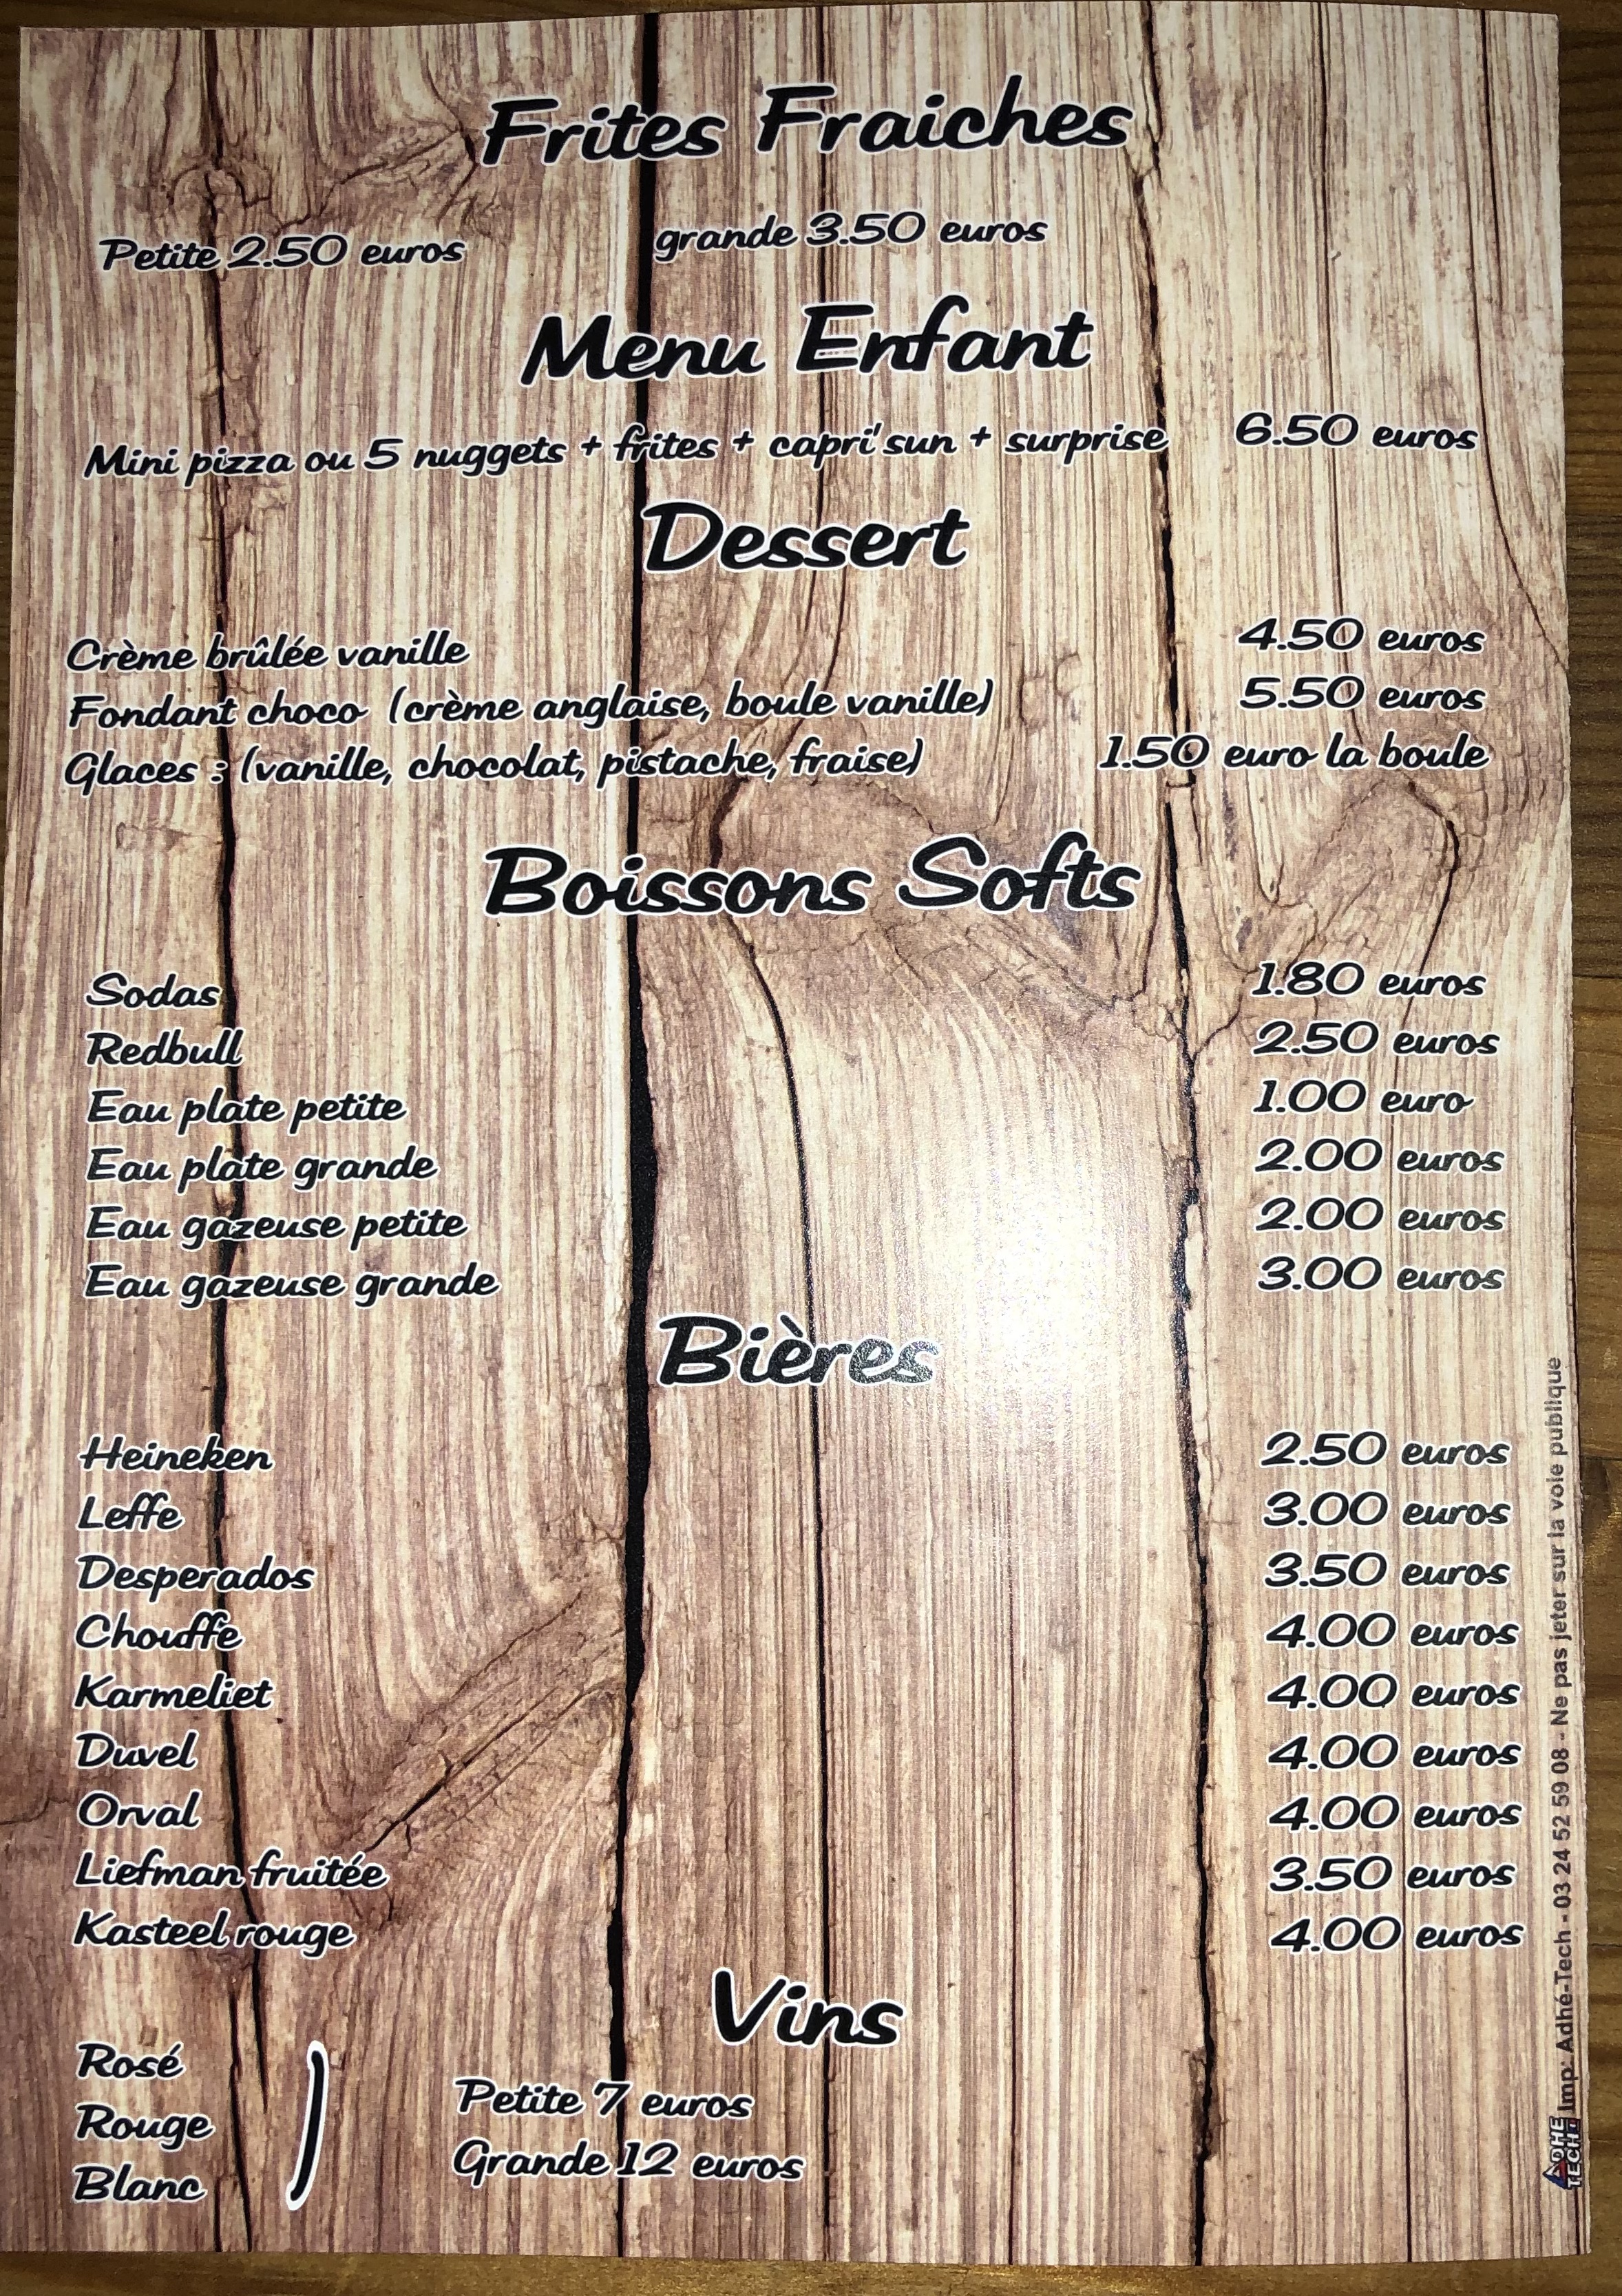 Frites Fraiches
Petite 2.50 euros grande 3.50 euros
Menu Enfant
Mini pizza ou 5 nuggets + frites + capri'sun + surprise 6.50 euros
Dessert
Crème brûlée vanille 4.50 euros
Fondant choco (crème anglaise, boule vanille) 5.50 euros
Glaces : (vanille, chocolat, pistache, fraise) 1.50 euro la boule
Boissons Softs
Sodas 1.80 euros
Redbull 2.50 euros
Eau plate petite 1.00 euro
Eau plate grande 2.00 euros
Eau gazeuse petite 2.00 euros
Eau gazeuse grande 3.00 euros
Bières
Heineken 2.50 euros
Leffe 3.00 euros
Desperados 3.50 euros
Chouffe 4.00 euros
Karmeliet 4.00 euros
Duvel 4.00 euros
Orval 4.00 euros
Liefman fruitée 3.50 euros
Kasteel rouge 4.00 euros
Vins
Rosé
Rouge
Blanc
Petite 7 euros
Grande 12 euros
ADHE TECH Imp: Adhé-Tech - 03 24 52 59 08 - Ne pas jeter sur la voie publique